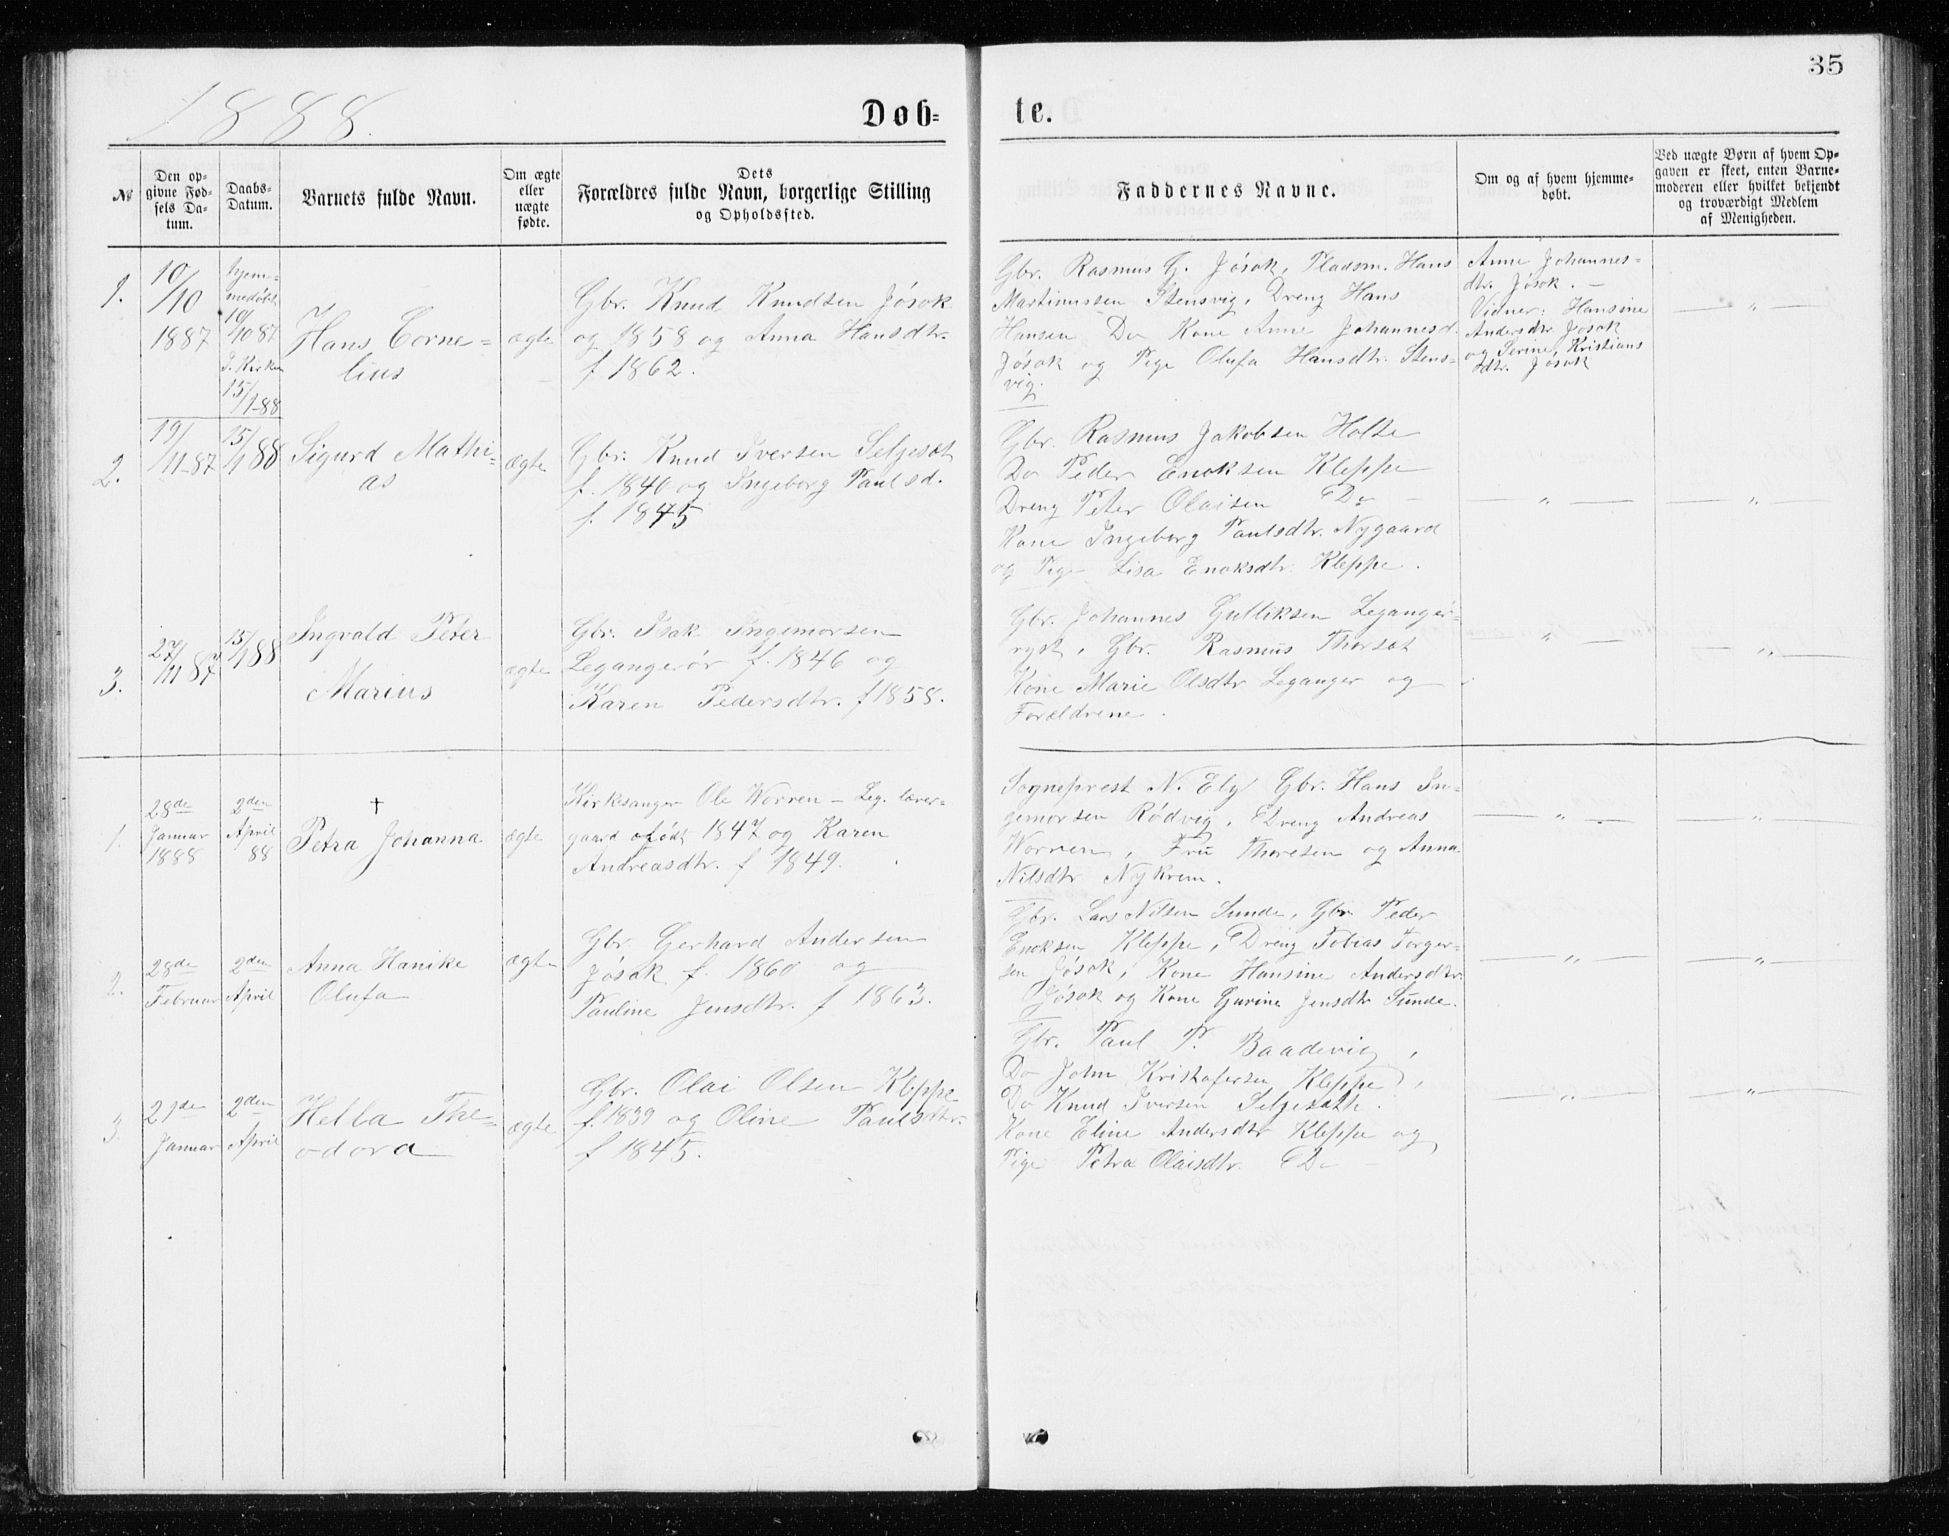 35
1888.
Døb=
te.
№
Den op-
givne Fød-
sels Da-
tum.
Daabs-
Datum.
Barnets fulde Navn.
Om ægte
eller
uægte
fødte.
Dets
Forældres fulde Navn, borgerlige Stilling
og Opholdssted.
Faddernes Navne.
Om og af hvem hjemme-
døbt.
Ved uægte Børn af hvem Op-
gaven er skeet, enten Barne-
moderen eller hvilket bekjendt
og troværdigt Medlem
af Menigheden.
1.
10/10
1887
hjem-
medøbt
10/10 87
I. Kirken
15/1-88
Hans Corne=
lius
ægte
Gbr. Knud Knudsen Jøsok
og 1858 og Anna Hansdtr.
f 1862.
Gbr. Rasmus G. Jøsok, Pladsm. Hans
Martinussen Stensvig, Dreng Hans
Hansen Do Kone Anne Johannesd.
Jøsok og Pige Olufa Hansdtr. Stens-
vig.
Anne Johannes=
dtr. Jøsok. —
Vidner: Hansine
Andersdtr Jøsok
og Serine Kristians
dtr. Jøsok
— „ —
2.
19/11-87
15/1 88
Sigurd Mathi-
as
ægte
Gbr. Knud Iversen Seljesæt
f. 1840 og Ingeborg Paulsd.
f. 1845
Gbr. Rasmus Jakobsen Holte
Do Peder Enoksen Kleppe
Dreng Peter Olaisen Do —
Kone Ingeborg Paulsdtr. Nygaard
og Pige Lisa Enoksdtr. Kleppe.
— „ —
— „ —
3.
27/11 87
15/1 88
Ingvald Peter
Marius
ægte
Gbr. Isak Ingemorsen
Legangerør f. 1846 og
Karen Pedersdtr. f 1858.
Gbr. Johannes Gulliksen Leganger-
ryst, Gbr. Rasmus Thorsæt
Kone Marie Olsdtr Leganger og
Forældrene.
— „ —
— „ —
1.
28de
Januar
1888
2den
April
88
†
Petra Johanna
ægte
Kirkesanger Ole Worren — Leg. lærer=
gaard født 1847 og Karen
Andreasdtr. f 1849.
Sogneprest N. Ely Gbr. Hans In-
gemorsen Rødvig, Dreng Andreas
Worren, Fru Thoresen og Anna
Nilsdtr Nykrem.
— „ —
— „ —
2.
28de
Februar
2den
April
Anna Hanike
Olufa
ægte
Gbr. Gerhard Andersen
Jøsok f. 1860 og
Pauline Jensdtr. f 1863.
Gbr. Lars Nilsen Sunde, Gbr Peder
Enoksen Kleppe, Dreng Tobias Torger-
sen Jøsok, Kone Hansine Andersdtr.
Jøsok og Kone Gurine Jensdtr Sunde.
— „ —
— „ —
3.
21de
Januar
2den
April
Hella The=
odora
ægte
Gbr. Olai Olsen Kleppe
f. 1839 og Oline Paulsdtr.
f 1845.
Gbr. Paul P. Baadevig,
Do John Kristofersen Kleppe,
Do Knud Iversen Seljesæth.
Kone Eline Andersdtr Kleppe og
Pige Petra Olaisdtr. Do —
— „ —
— „ —